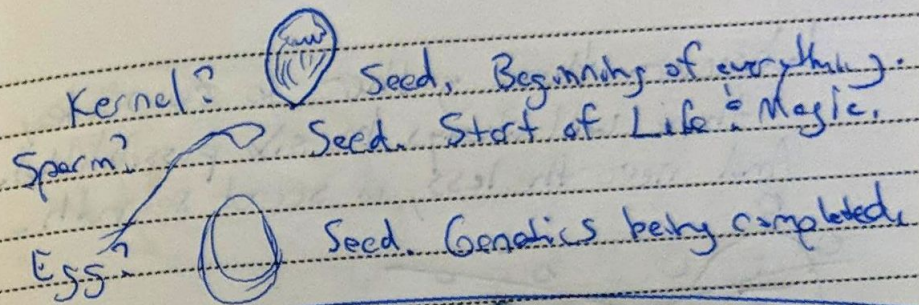 Kernel? Seed, Beginning of everything.
Sperm? Seed. Start of Life: Magic.
Egg? Seed. Genetics being completed.